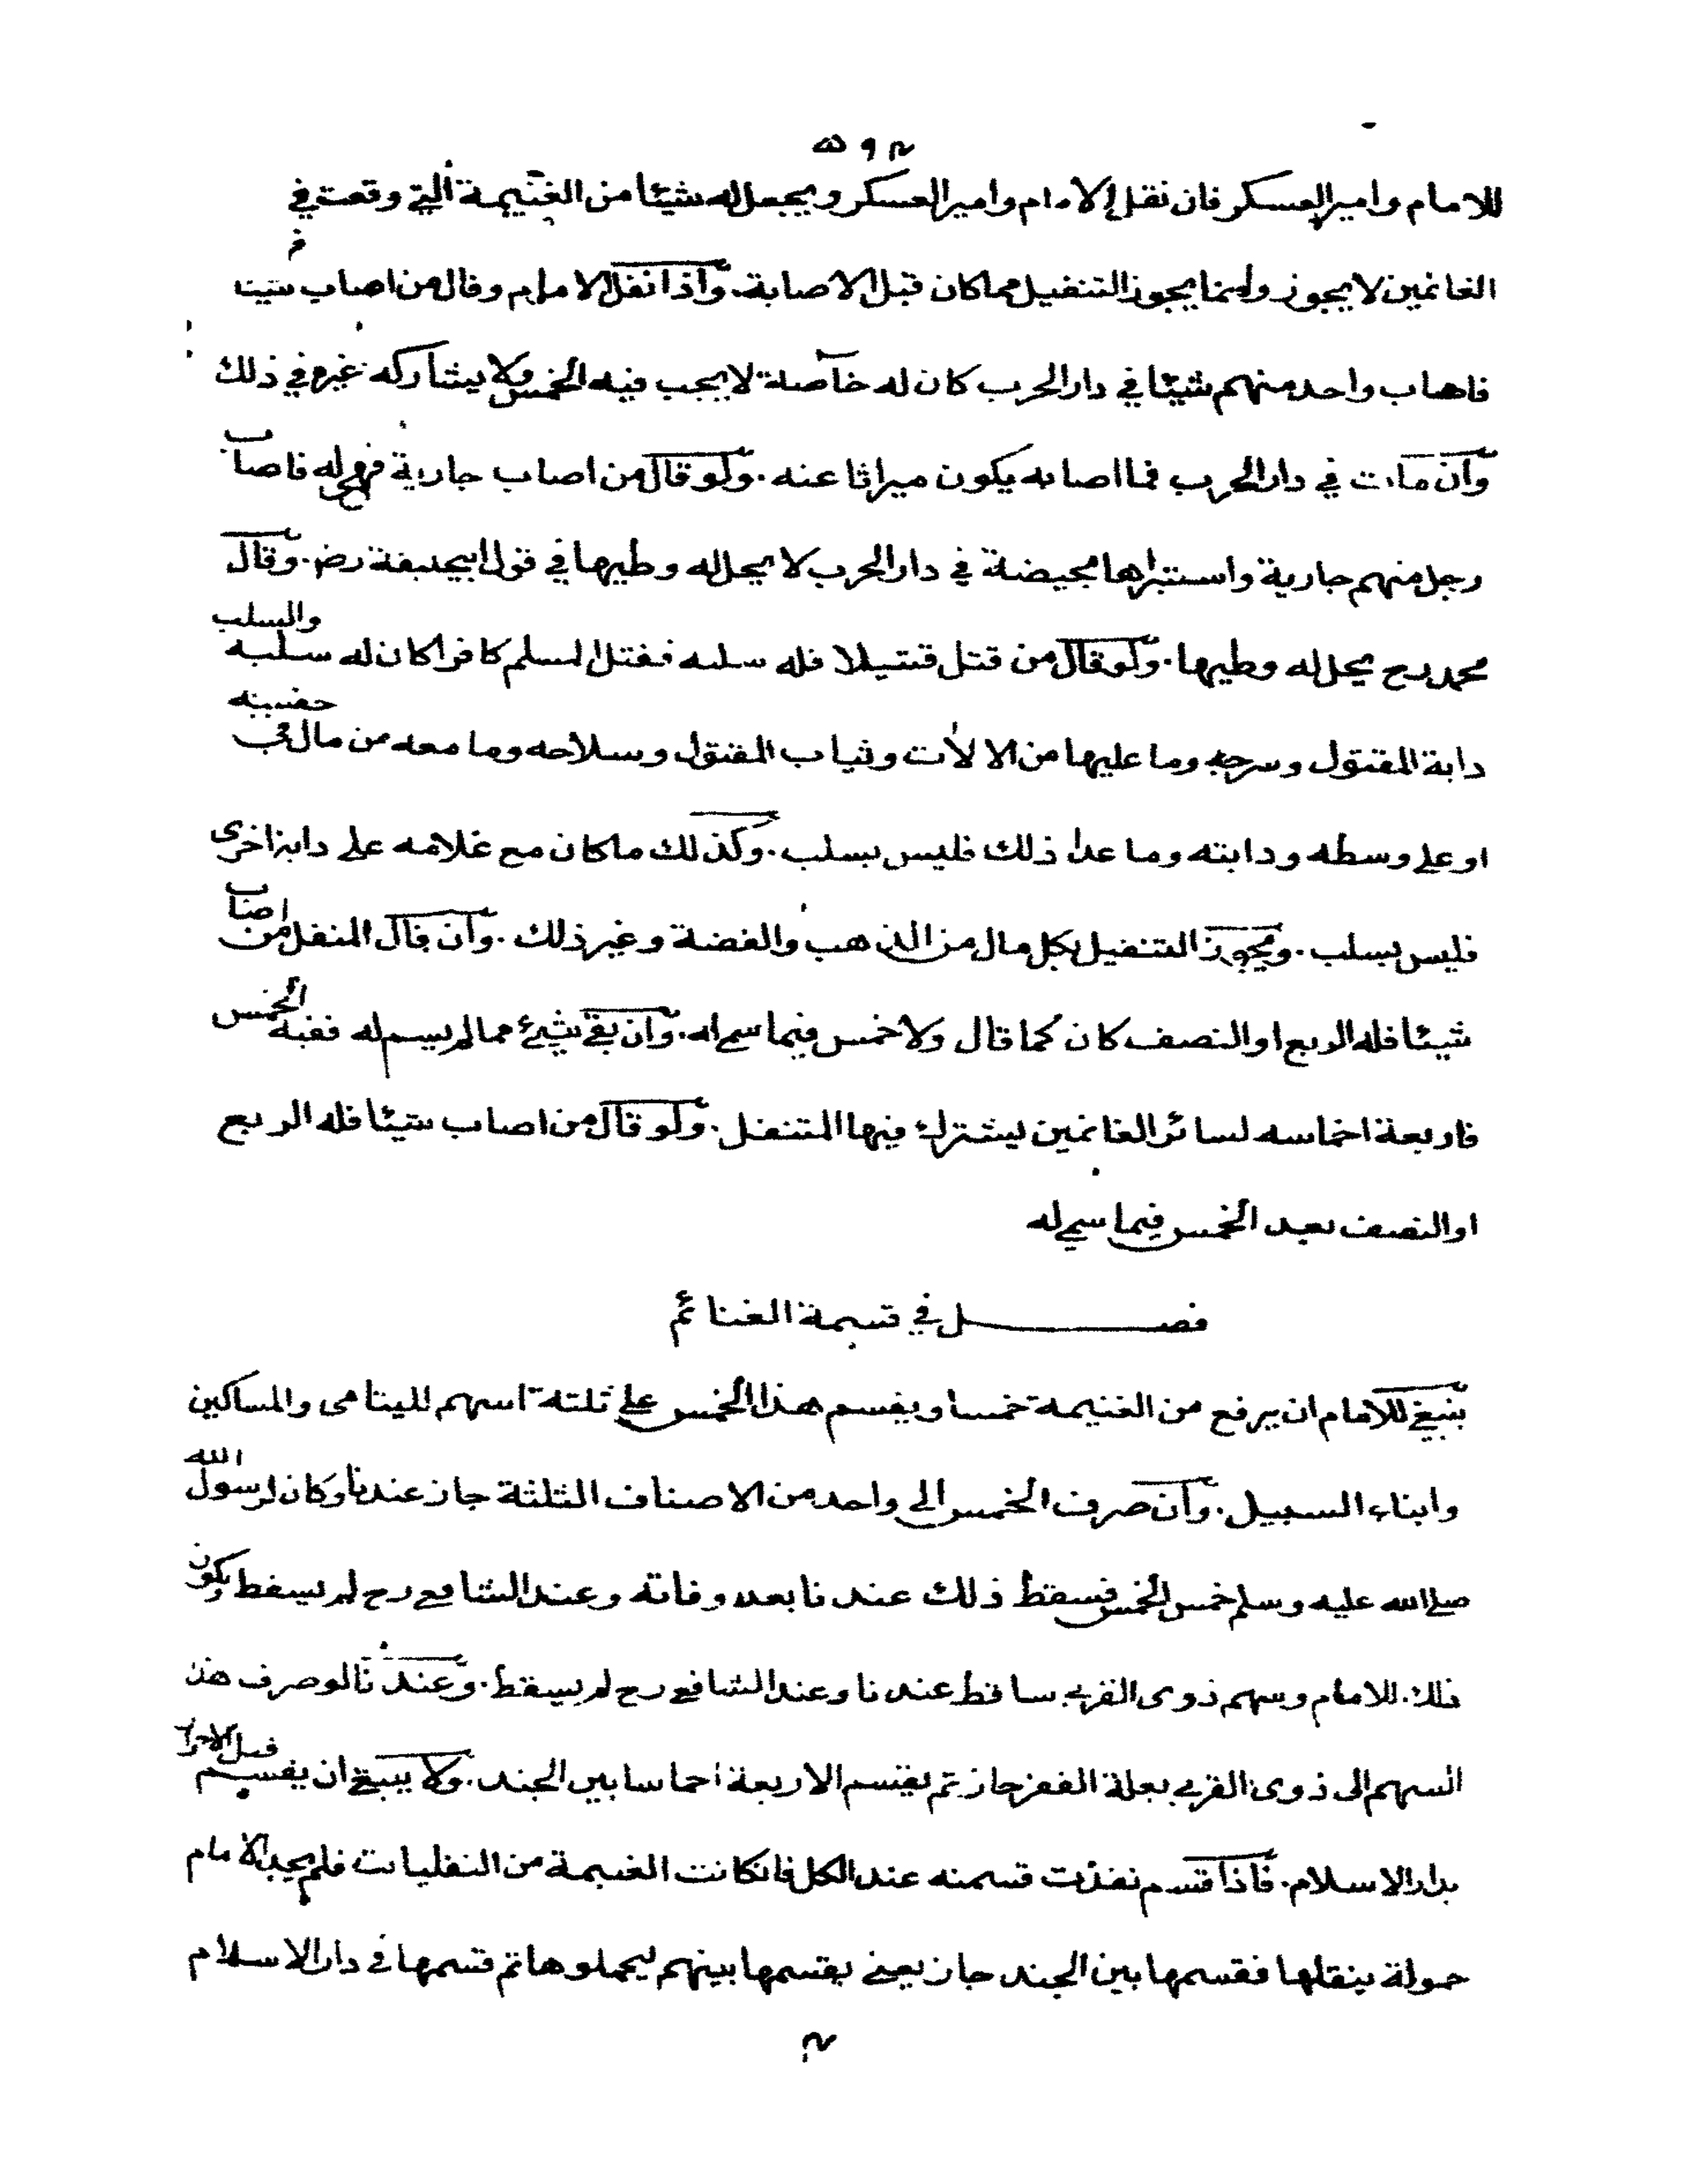 ٥٩٢
للامام وامير العسكر فان نفل الامام وامير العسكر ويجعل له شيئا من الغنيمة التي وقعت في
الغانمين لا يجوز وانما يجوز التنفيل مما كان قبل الاصابة. واذا نفل الامام وقال من اصاب شيئا
فاصاب واحد منهم شيئا في دار الحرب كان له خاصة لا يجب فيه الخمس ولا يشاركه غيره في ذلك
وان مات في دار الحرب فما اصابه يكون ميراثا عنه. ولو قال من اصاب جارية فهي له فاصاب
رجل منهم جارية واستبراها بحيضة في دار الحرب لا يحل له وطيها في قول ابيحنيفة رض. وقال
محمد رح يحل له وطيها. ولو قال من قتل قتيلا فله سلبه فقتل المسلم كافرا كان له سلبه والسلب
دابة المقتول وسرجه وما عليها من الالات وثياب المقتول وسلاحه وما معه من مال في حقيبته
او على وسطه ودابته وما عدا ذلك فليس بسلب. وكذلك ما كان مع غلامه على دابة اخرى
فليس بسلب. ويجوز التنفيل بكل مال من الذهب والفضة وغير ذلك. وان قال المنفل من اصاب
شيئا فله الربع او النصف كان كما قال ولا خمس فيما سمى له. وان بقي شيئ مما لم يسم له ففيه الخمس
فاربعة اخماسه لسائر الغانمين ليشترك فيها المتنفل. ولو قال من اصاب شيئا فله الربع
او النصف بعد الخمس فيما سمي له
فصل في قسمة الغنائم
ينبغي للامام ان يرفع من الغنيمة خمسا ويقسم هذا الخمس على ثلثة اسهم لليتامى والمساكين
وابناء السبيل. وان صرف الخمس الى واحد من الاصناف الثلثة جاز عندنا وكان لرسول الله
صلى الله عليه وسلم خمس الخمس فسقط ذلك عندنا بعد وفاته وعند الشافعي رح لم يسقط ويكون
ذلك للامام وسهم ذوى القربى ساقط عندنا وعند الشافعي رح لم يسقط. وعندنا لو صرف هذا
السهم الى ذوى القربى بعلة الفقر جاز ثم يقسم الاربعة اخماسا بين الجند. ولا ينبغي ان يقسم قبل الاحراز
بدار الاسلام. فاذا قسم نفذت قسمته عند الكل فان كانت الغنيمة من النقليات فلم يجد الامام
حمولة ينقلها فقسمها بين الجند جاز يعنى يقسمها بينهم ليحملوها ثم قسمها في دار الاسلام